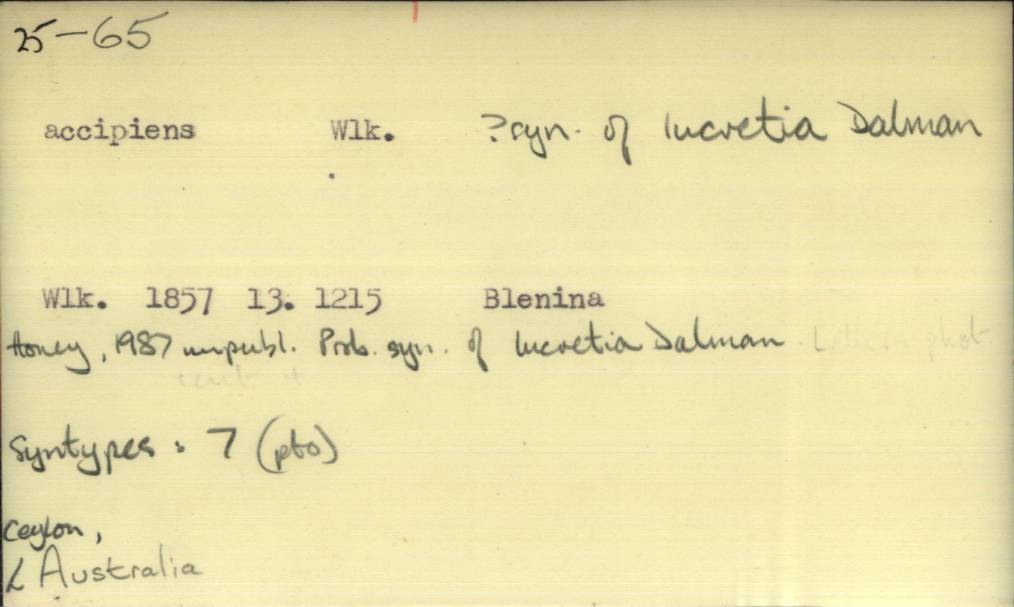 25-65
accipiens Wlk. ?syn. of lucretia Dalman
Wlk. 1857 13. 1215 Blenina
Honey, 1987 unpubl. Prob. syn. of lucretia Dalman
Syntypes : 7 (pto)
Ceylon,
Australia